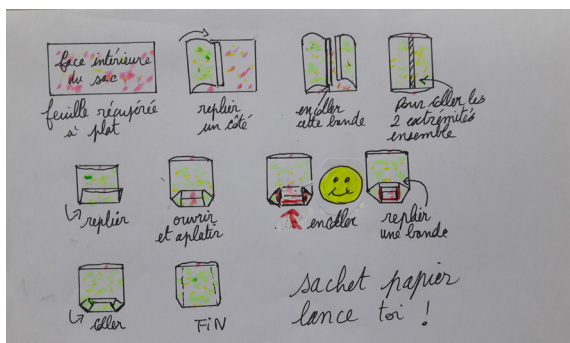 face intérieure
du sac
feuille récupérée
à plat
replier
un côté
encoller
cette bande
pour coller les
2 extrémités
ensemble
replier
ouvrir
et aplatir
encoller
replier
une bande
coller
FiN
sachet papier
lance toi !